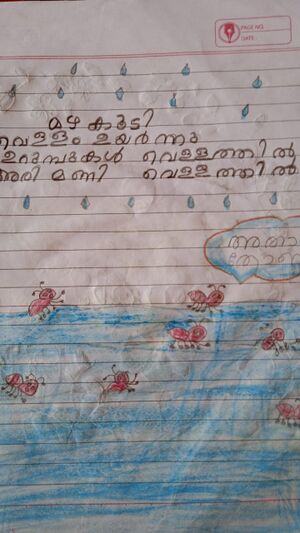 PAGE NO.
DATE:
മഴ കൂടി
വെള്ളം ഉയർന്നു
ഉറുമ്പുകൾ വെള്ളത്തിൽ
അരി മണി വെള്ളത്തിൽ